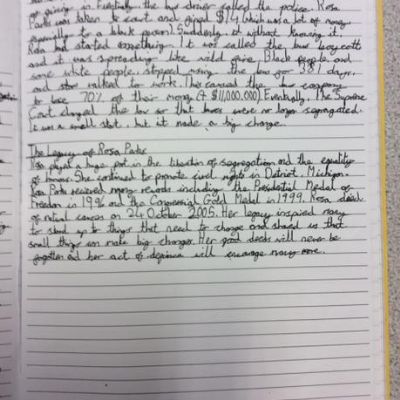 of giving in. Eventually the bus driver called the police. Rosa
Parks was taken to court and fined $14 (which was a lot of money
especially to a black person). Suddenly, without knowing it,
Rosa had started something. It was called the bus boycott
and it was spreading like wild fire. Black people and
some white people, stopped using the bus for 381 days,
and walked to work. This caused the bus company
to lose 70% of their money (+ $11,000,000). Eventually, The Supreme
Court changed the law so that buses were no longer segregated.
It was a small start, but it made a big change.
The Legacy of Rosa Parks
Rosa played a huge part in the of segregation and the equality
of humans. She continued to promote civil rights in Detriot, Michigan.
Rosa Parks recieved many including the Presidential Medal of
Freedom in 1996 and the Congressional Gold Medal in 1999. Rosa died
of natural causes on 24 October 2005. Her legacy inspired many
to stand up to things that need to change and showed us that
small things can make big changes. Her good deeds will never be
forgotten and her act of defiance will encourage many more.